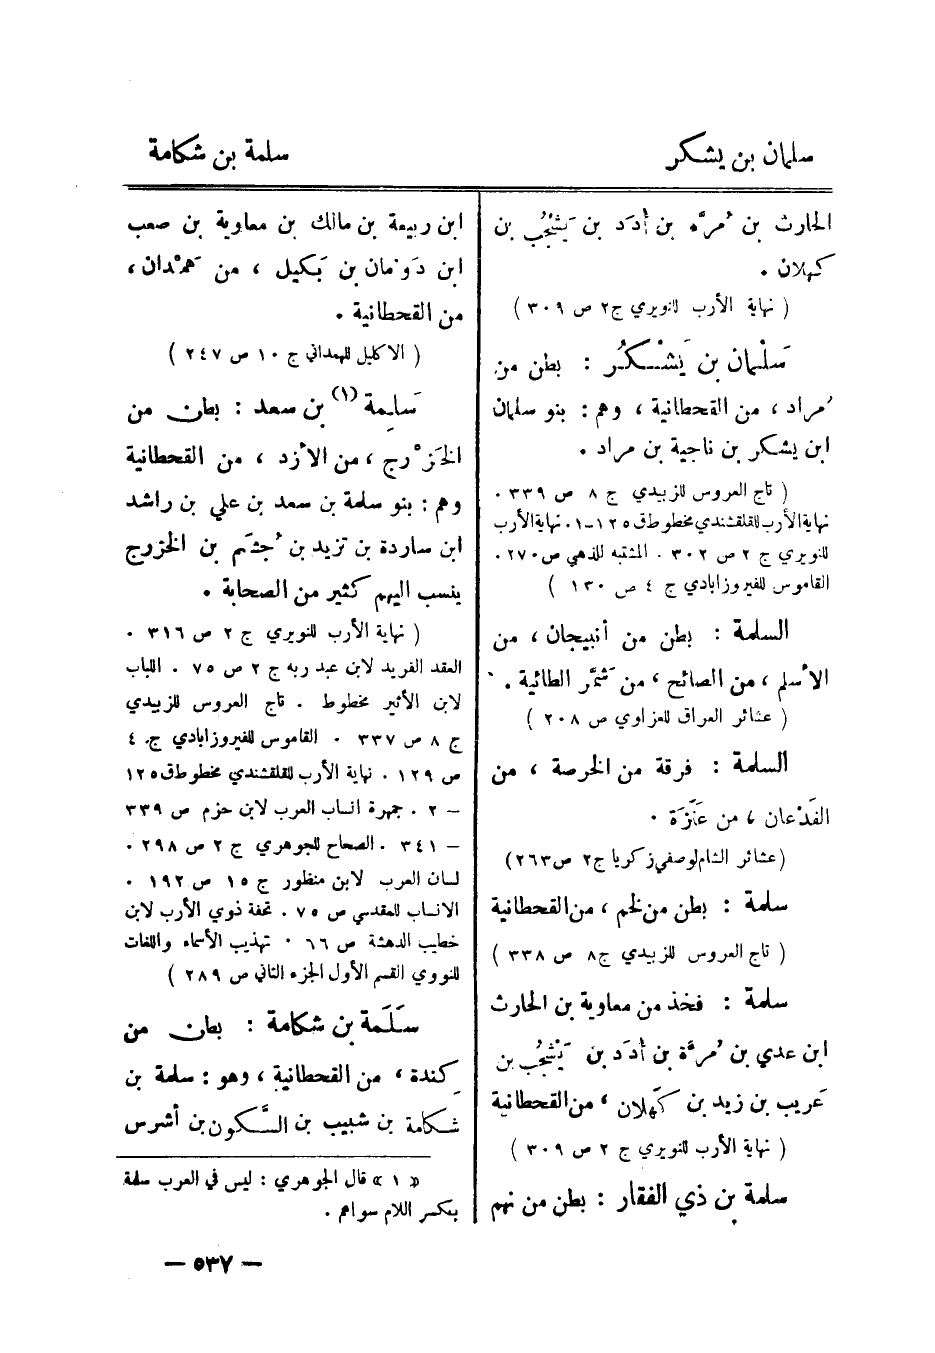 سلمان بن يشكر
سلمة بن شكامة
الحارث بن مُرّة بن أدَد بن يَشْجُب بن
كهلان .
( نهاية الأرب للنويري ج٢ ص ٣٠٩ )
سَلْمان بن يَشْكُر : بطن من
مُراد ، من القحطانية ، وهم : بنو سلمان
ابن يشكر بن ناجية بن مراد .
( تاج العروس للزبيدي ج ٨ ص ٣٣٩ .
نهاية الأرب للقلقشندي مخطوط ق ١٢٥-١ . نهاية الأرب
للنويري ج ٢ ص ٣٠٢ . المشتبه للذهبي ص ٢٧٠ .
القاموس للفيروزابادي ج ٤ ص ١٣٠ )
السلمة : بطن من أنبيجان ، من
الأسلم ، من الصائح ، من شَمَّر الطائية .
( عشائر العراق للعزاوي ص ٢٠٨ )
السلمة : فرقة من الخرصة ، من
الفَدْعان ، من عَنَزَة .
(عشائر الشام لوصفي زكريا ج٢ ص ٢٦٣)
سلمة : بطن من لخم ، من القحطانية
( تاج العروس للزبيدي ج٨ ص ٣٣٨ )
سلمة : فخذ من معاوية بن الحارث
ابن عدي بن مُرَّة بن أدَد بن يَشْجُب بن
عَريب بن زيد بن كَهلان ، من القحطانية
( نهاية الأرب للنويري ج ٢ ص ٣٠٩ )
سلمة بن ذي الفقار : بطن من نهم
ابن ربيعة بن مالك بن معاوية بن صعب
ابن دَومان بن بَكيل ، من هَمْدان ،
من القحطانية .
( الاكليل للهمداني ج ١٠ ص ٢٤٧ )
سَلِمة (١) بن سعد : بطن من
الخَزْرج ، من الأزد ، من القحطانية
وهم : بنو سلمة بن سعد بن علي بن راشد
ابن ساردة بن تزيد بن جُشَم بن الخزرج
ينسب اليهم كثير من الصحابة .
( نهاية الأرب للنويري ج ٢ ص ٣١٦ .
العقد الفريد لابن عبد ربه ج ٢ ص ٧٥ . اللباب
لابن الأثير مخطوط . تاج العروس للزبيدي
ج ٨ ص ٣٣٧ . القاموس للفيروزابادي ج. ٤
ص ١٢٩ . نهاية الأرب للقلقشندي مخطوط ق ١٢٥
- ٢ . جمهرة انساب العرب لابن حزم ص ٣٣٩
- ٣٤١ . الصحاح للجوهري ج ٢ ص ٢٩٨ .
لسان العرب لابن منظور ج ١٥ ص ١٩٢ .
الانساب للمقدسي ص ٧٥ . تحفة ذوي الأرب لابن
خطيب الدهشة ص ٦٦ . تهذيب الأسماء واللغات
للنووي القسم الأول الجزء الثاني ص ٢٨٩ )
سَلَمة بن شكامة : بطن من
كِندة ، من القحطانية ، وهو : سلمة بن
شكامة بن شبيب بن السَّكون بن أشرس
« ١ » قال الجوهري : ليس في العرب سلمة
بكسر اللام سواهم .
— ٥٣٧ —